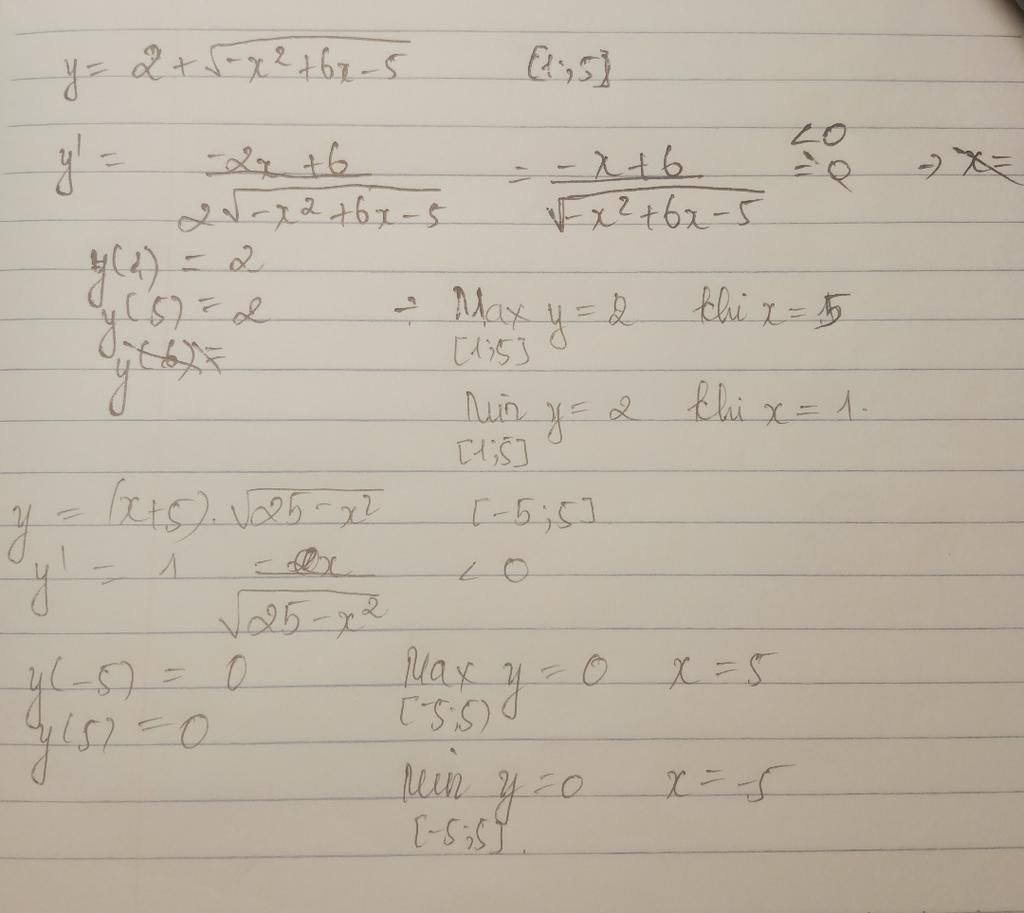 y = 2 + √(-x² + 6x - 5) [1;5]
y' = (-2x + 6)/(2√(-x² + 6x - 5)) = (-x + 6)/√(-x² + 6x - 5) <0 = 0 → x =
y(1) = 2
y(5) = 2 Max y = 2 khi x = 5
y(6) = [1;5]
Min y = 2 khi x = 1.
[1;5]
y = (x+5).√(25 - x²) [-5;5]
y' = 1 (-x)/√(25 - x²) < 0
y(-5) = 0 Max y = 0 x = 5
y(5) = 0 [-5;5)
Min y = 0 x = -5
[-5;5].